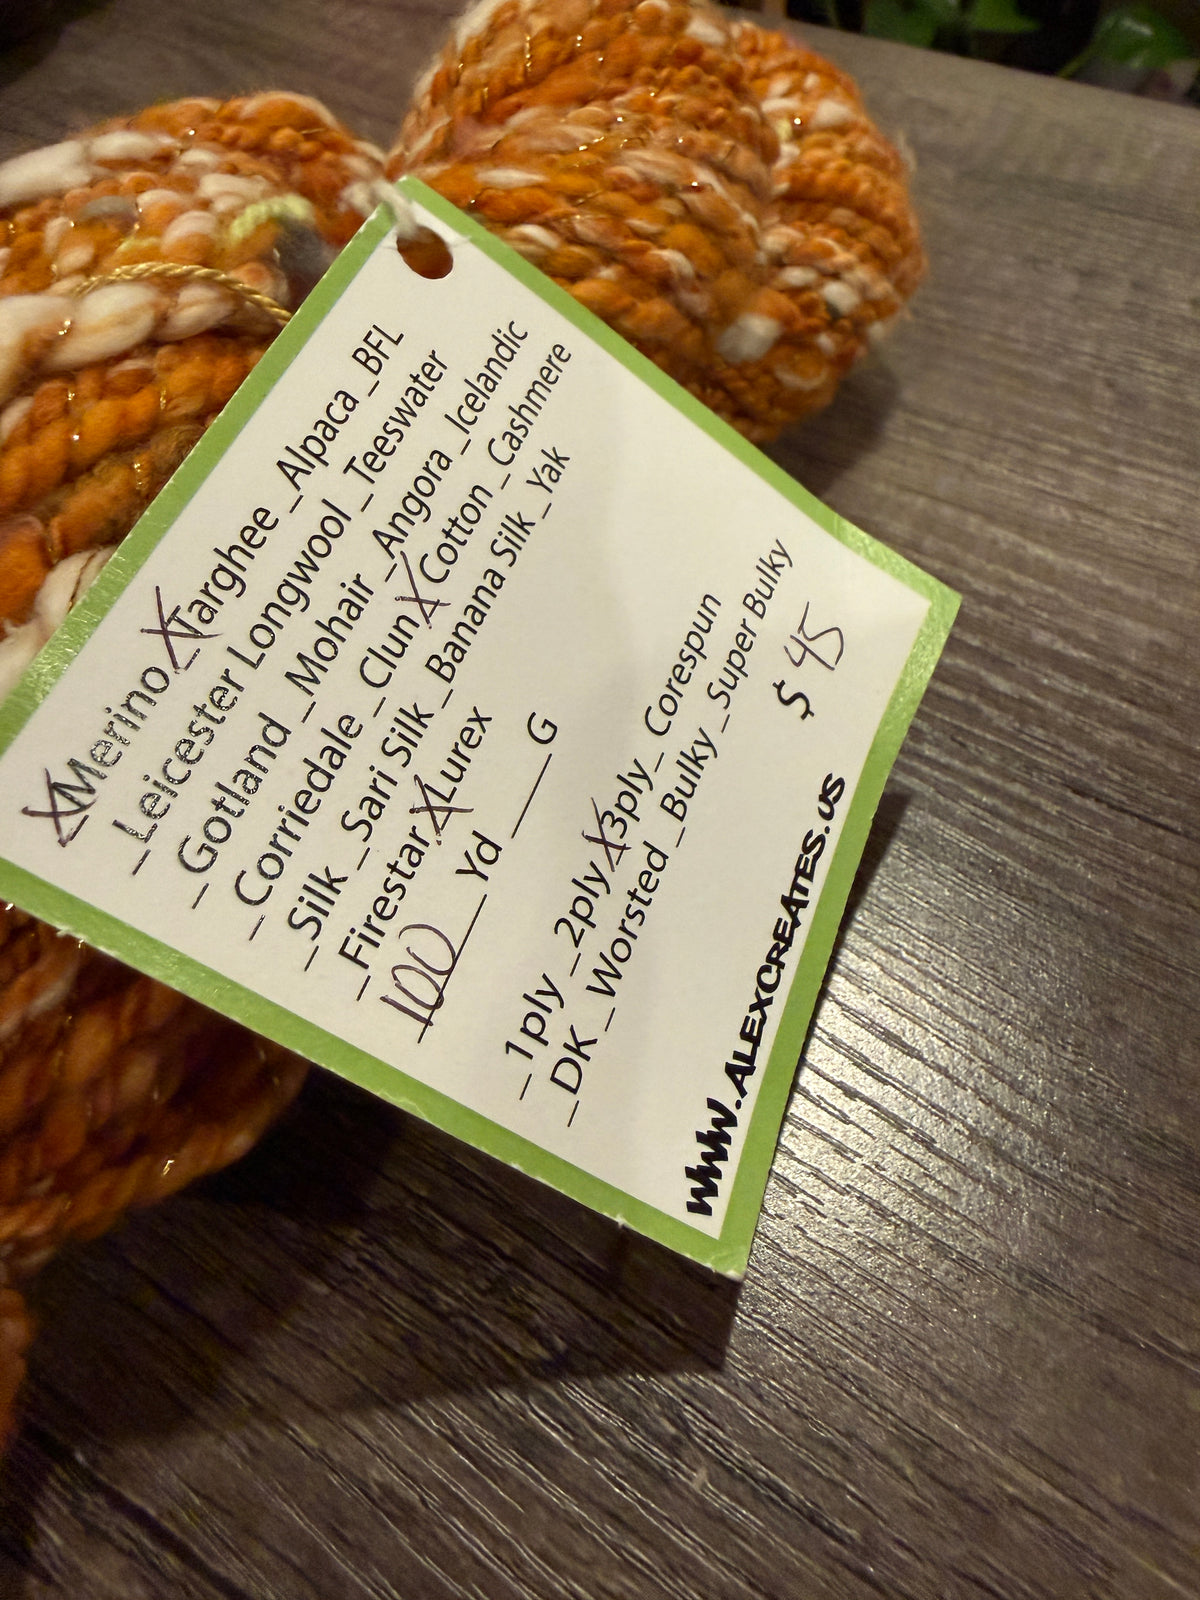 X Merino X Targhee _Alpaca _BFL
_Leicester Longwool _Teeswater
_Gotland _Mohair _Angora _Icelandic
_Corriedale _Clun X Cotton _Cashmere
_Silk _Sari Silk _Banana Silk _Yak
_Firestar X Lurex
100 Yd ____G
_1ply _2ply X 3ply_ Corespun
_DK _Worsted _Bulky _Super Bulky
$ 45
WWW.ALEXCREATES.US